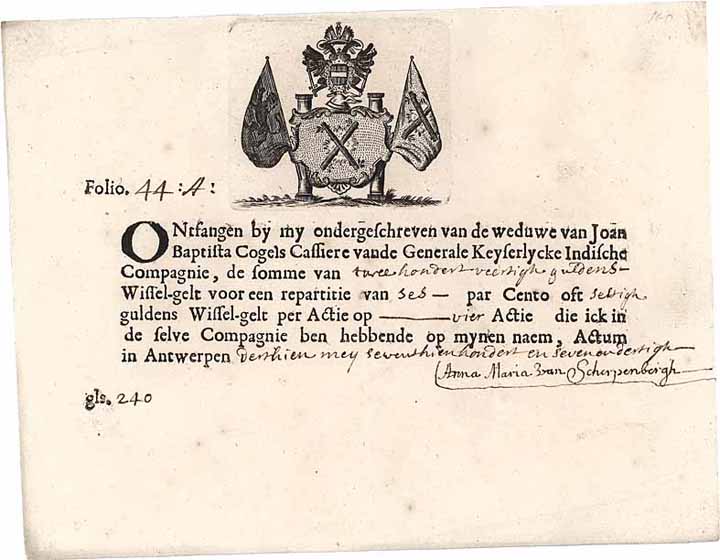 Folio. 44 : A :
ONtfangen by my ondergeschreven van de weduwe van Joan
Baptista Cogels Cassiere vande Generale Keyserlycke Indische
Compagnie, de somme van twee hondert veertigh guldens
Wissel-gelt voor een repartitie van ses — par Cento oft sestigh
guldens Wissel-gelt per Actie op —— vier Actie die ick in
de selve Compagnie ben hebbende op mynen naem, Actum
in Antwerpen derthien mey seventhien hondert en sevenendertigh
Anna Maria Van Scherpenbergh
gls. 240